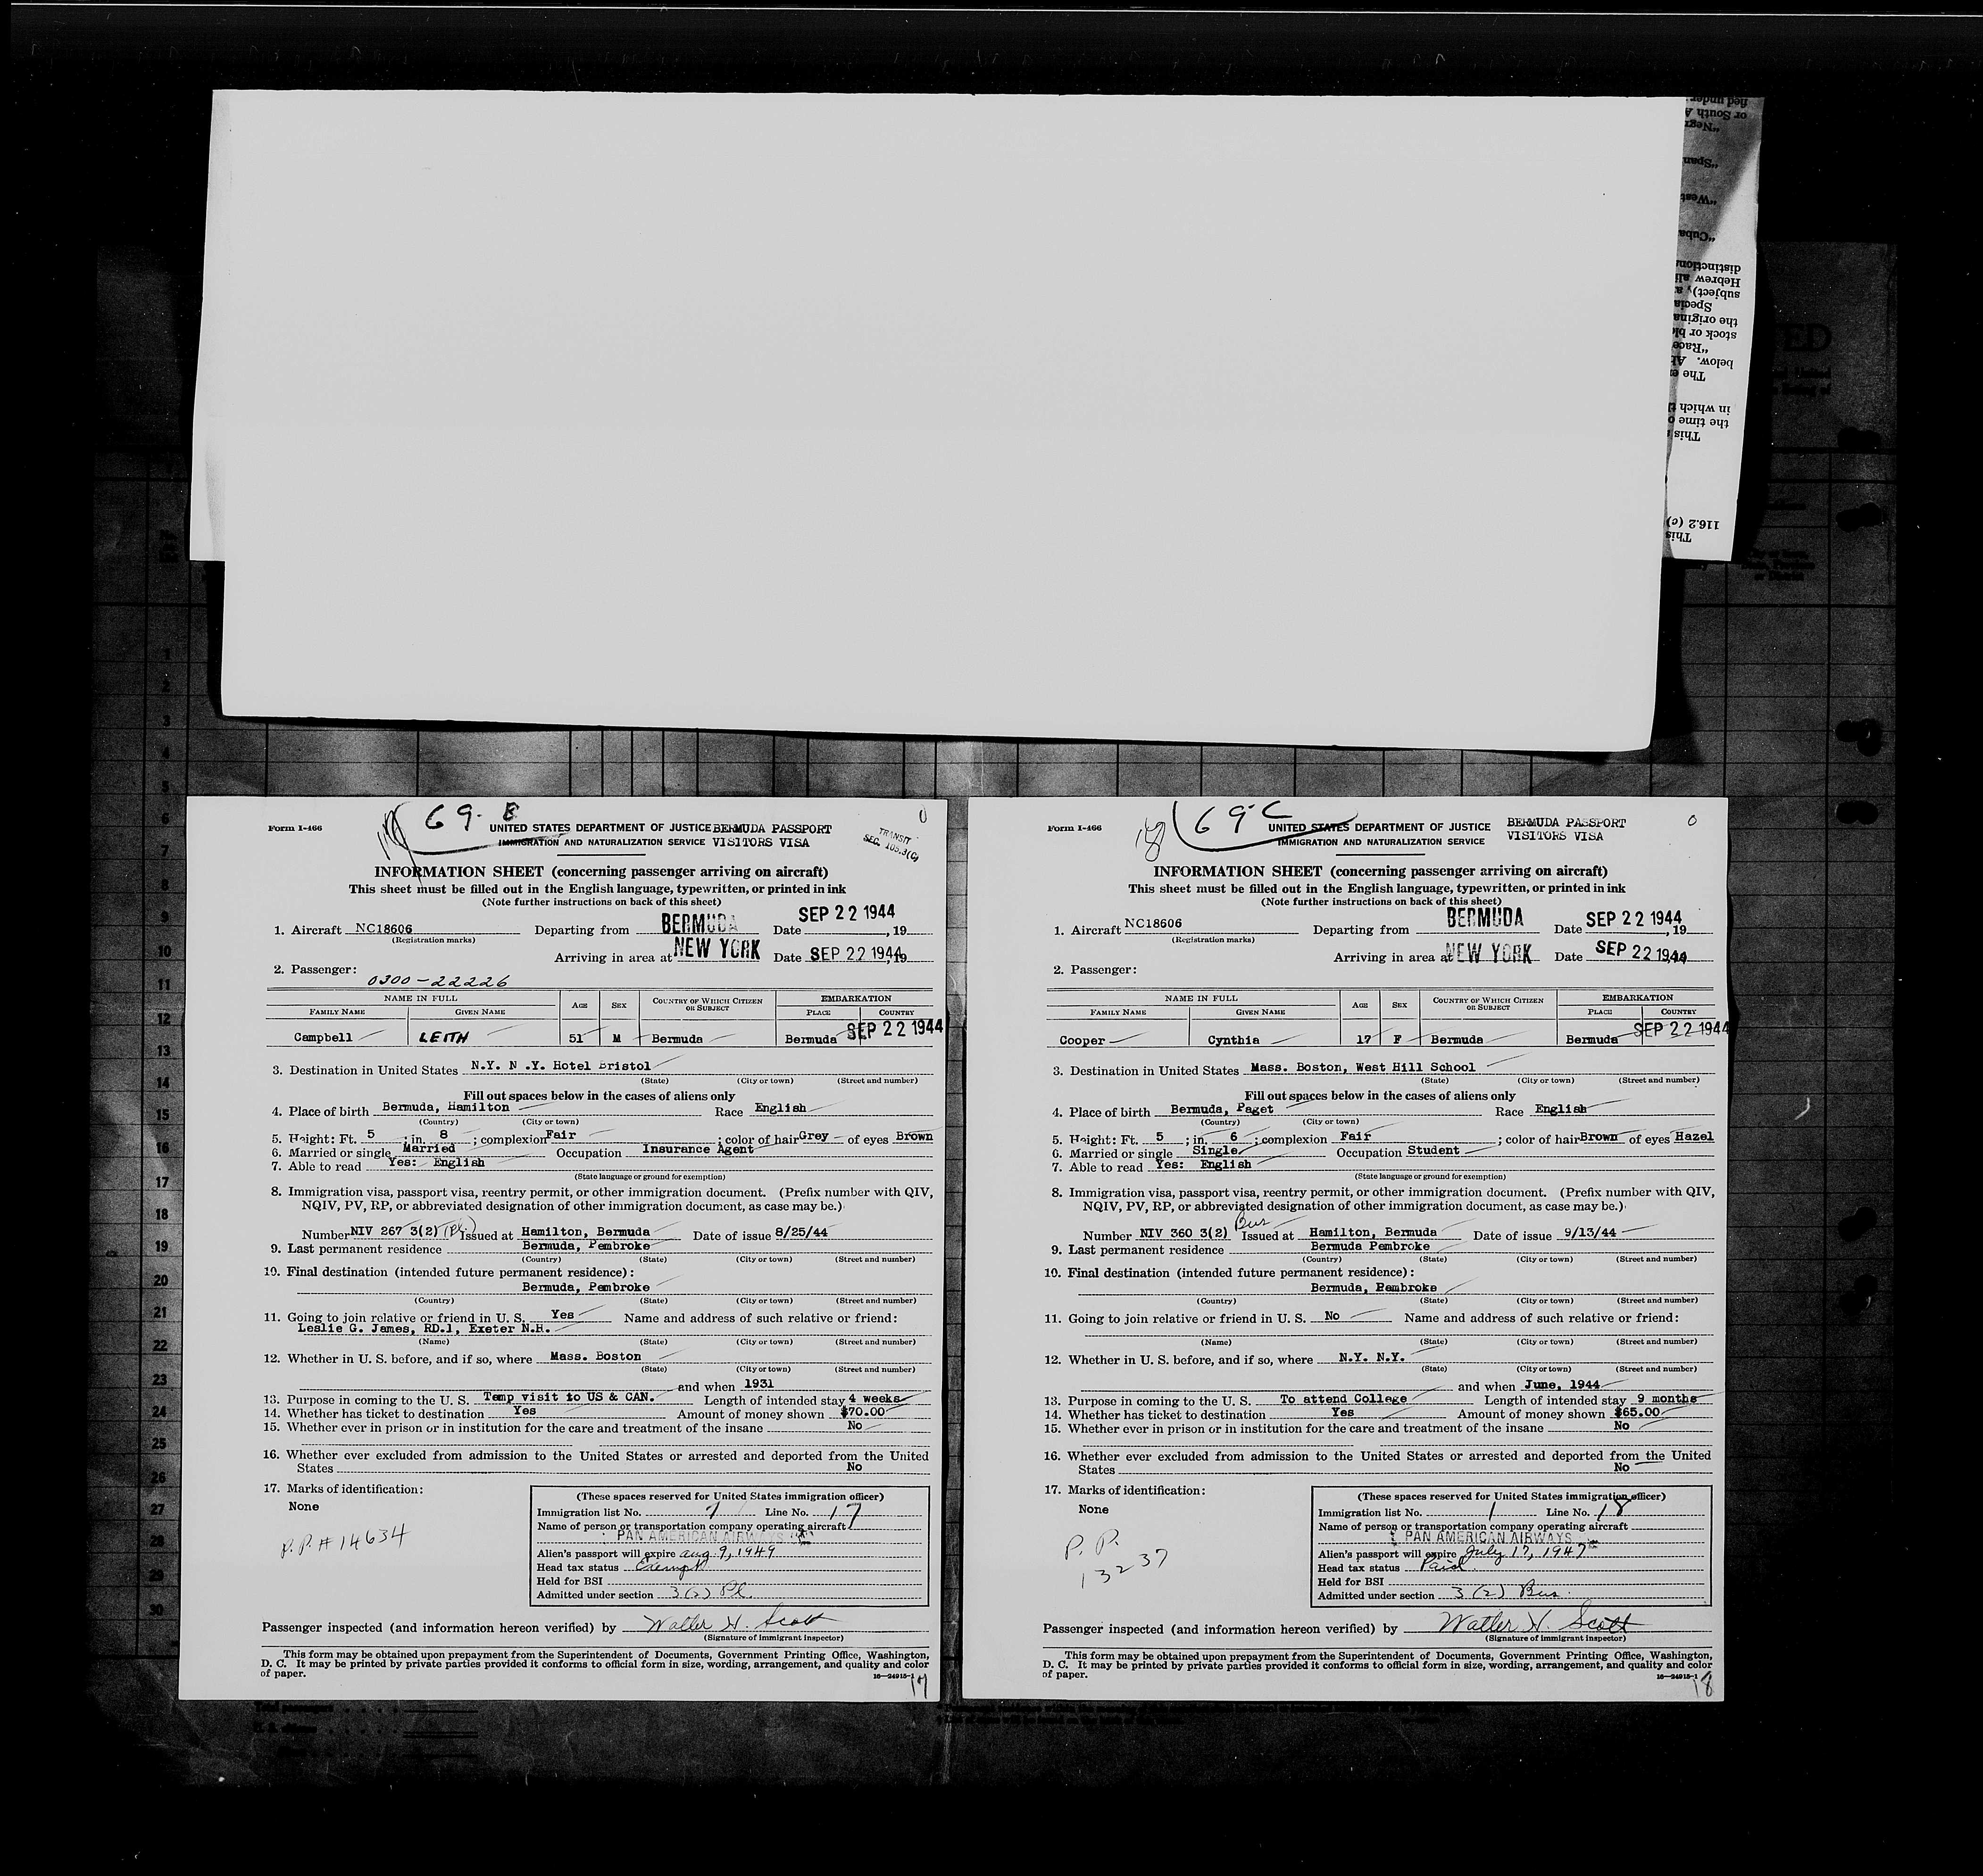 Form I-466
69-B
0
UNITED STATES DEPARTMENT OF JUSTICE BERMUDA PASSPORT
IMMIGRATION AND NATURALIZATION SERVICE VISITORS VISA
TRANSIT
SEC. 105.3(C)
INFORMATION SHEET (concerning passenger arriving on aircraft)
This sheet must be filled out in the English language, typewritten, or printed in ink
(Note further instructions on back of this sheet)
1. Aircraft NC18606 Departing from BERMUDA Date SEP 22 1944, 19
(Registration marks)
Arriving in area at NEW YORK Date SEP 22 1944, 19
2. Passenger:
0300-22226
NAME IN FULL AGE SEX COUNTRY OF WHICH CITIZEN OR SUBJECT EMBARKATION
FAMILY NAME GIVEN NAME PLACE COUNTRY
Campbell LEITH 51 M Bermuda Bermuda SEP 22 1944
3. Destination in United States N.Y. N .Y. Hotel Bristol
(State) (City or town) (Street and number)
Fill out spaces below in the cases of aliens only
4. Place of birth Bermuda, Hamilton Race English
(Country) (City or town)
5. Height: Ft. 5 ; in. 8 ; complexion Fair ; color of hair Grey of eyes Brown
6. Married or single Married Occupation Insurance Agent
7. Able to read Yes: English
(State language or ground for exemption)
8. Immigration visa, passport visa, reentry permit, or other immigration document. (Prefix number with QIV,
NQIV, PV, RP, or abbreviated designation of other immigration document, as case may be.)
Number NIV 267 3(2) (Pl.) Issued at Hamilton, Bermuda Date of issue 8/25/44
9. Last permanent residence Bermuda, Pembroke
(Country) (State) (City or town) (Street and number)
10. Final destination (intended future permanent residence):
Bermuda, Pembroke
(Country) (State) (City or town) (Street and number)
11. Going to join relative or friend in U. S. Yes Name and address of such relative or friend:
Leslie G. James, RD.1, Exeter N.H.
(Name) (State) (City or town) (Street and number)
12. Whether in U. S. before, and if so, where Mass. Boston
(State) (City or town) (Street and number)
and when 1931
13. Purpose in coming to the U. S. Temp visit to US & CAN. Length of intended stay 4 weeks
14. Whether has ticket to destination Yes Amount of money shown $70.00
15. Whether ever in prison or in institution for the care and treatment of the insane No
16. Whether ever excluded from admission to the United States or arrested and deported from the United
States No
17. Marks of identification:
None
P.P. # 14634
(These spaces reserved for United States immigration officer)
Immigration list No. 1 Line No. 17
Name of person or transportation company operating aircraft
PAN AMERICAN AIRWAYS
Alien's passport will expire Aug 9, 1949
Head tax status Exempt
Held for BSI
Admitted under section 3(2) Pl.
Passenger inspected (and information hereon verified) by Walter H. Scott
(Signature of immigrant inspector)
This form may be obtained upon prepayment from the Superintendent of Documents, Government Printing Office, Washington,
D. C. It may be printed by private parties provided it conforms to official form in size, wording, arrangement, and quality and color
of paper.
16—24915-1
17
Form I-466
18
69-C
0
UNITED STATES DEPARTMENT OF JUSTICE BERMUDA PASSPORT
IMMIGRATION AND NATURALIZATION SERVICE VISITORS VISA
INFORMATION SHEET (concerning passenger arriving on aircraft)
This sheet must be filled out in the English language, typewritten, or printed in ink
(Note further instructions on back of this sheet)
1. Aircraft NC18606 Departing from BERMUDA Date SEP 22 1944, 19
(Registration marks)
Arriving in area at NEW YORK Date SEP 22 1944
2. Passenger:
NAME IN FULL AGE SEX COUNTRY OF WHICH CITIZEN OR SUBJECT EMBARKATION
FAMILY NAME GIVEN NAME PLACE COUNTRY
Cooper Cynthia 17 F Bermuda Bermuda SEP 22 1944
3. Destination in United States Mass. Boston, West Hill School
(State) (City or town) (Street and number)
Fill out spaces below in the cases of aliens only
4. Place of birth Bermuda, Paget Race English
(Country) (City or town)
5. Height: Ft. 5 ; in. 6 ; complexion Fair ; color of hair Brown of eyes Hazel
6. Married or single Single Occupation Student
7. Able to read Yes: English
(State language or ground for exemption)
8. Immigration visa, passport visa, reentry permit, or other immigration document. (Prefix number with QIV,
NQIV, PV, RP, or abbreviated designation of other immigration document, as case may be.)
Number NIV 360 3(2) Bus Issued at Hamilton, Bermuda Date of issue 9/13/44
9. Last permanent residence Bermuda Pembroke
(Country) (State) (City or town) (Street and number)
10. Final destination (intended future permanent residence):
Bermuda, Pembroke
(Country) (State) (City or town) (Street and number)
11. Going to join relative or friend in U. S. No Name and address of such relative or friend:
(Name) (State) (City or town) (Street and number)
12. Whether in U. S. before, and if so, where N.Y. N.Y.
(State) (City or town) (Street and number)
and when June, 1944
13. Purpose in coming to the U. S. To attend College Length of intended stay 9 months
14. Whether has ticket to destination Yes Amount of money shown $65.00
15. Whether ever in prison or in institution for the care and treatment of the insane No
16. Whether ever excluded from admission to the United States or arrested and deported from the United
States No
17. Marks of identification:
None
P. P.
13237
(These spaces reserved for United States immigration officer)
Immigration list No. 1 Line No. 18
Name of person or transportation company operating aircraft
PAN AMERICAN AIRWAYS
Alien's passport will expire July 17, 1947
Head tax status Paid
Held for BSI
Admitted under section 3(2) Bus.
Passenger inspected (and information hereon verified) by Walter H. Scott
(Signature of immigrant inspector)
This form may be obtained upon prepayment from the Superintendent of Documents, Government Printing Office, Washington,
D. C. It may be printed by private parties provided it conforms to official form in size, wording, arrangement, and quality and color
of paper.
16—24915-1
18